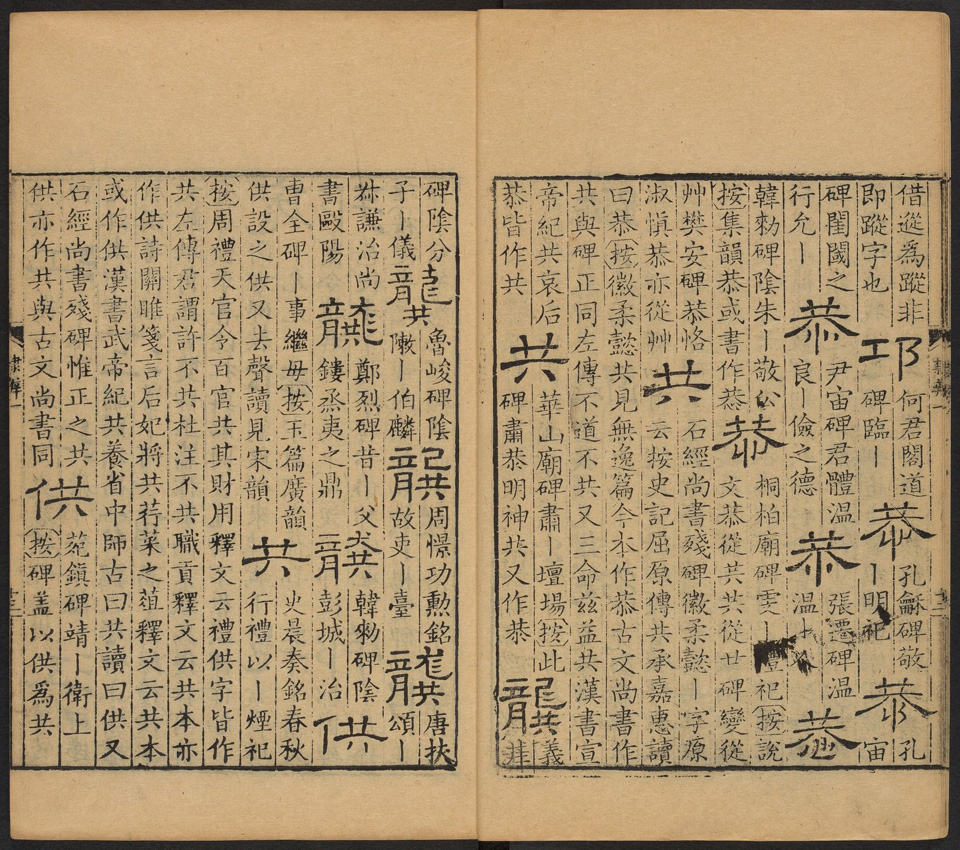 借蹤為蹤非
即蹤字也
邛
何君閣道
碑臨丨
恭
孔龢碑敬
丨明祀
恭
孔
宙
碑閨閫之
行允丨
恭
尹宙碑君體溫
良丨儉之德
恭
張遷碑溫
溫
恭
韓勑碑陰朱丨敬公
按集韻恭或書作㳟
㳟
桐柏廟碑雯丨禮祀按說
文恭從共從廿碑變從
艸樊安碑恭恪
淑慎恭亦從艸
共
石經尚書殘碑徽柔懿丨字原
云按史記屈原傳共承嘉惠讀
曰恭按徽柔懿共見無逸篇今本作恭古文尚書作
共與碑正同左傳不道不共又三命兹益共漢書宣
帝紀共哀后
恭皆作共
共
華山廟碑肅丨壇場按此
碑肅恭明神共又作恭
龔
義
井
碑陰分
子丨儀
龔
魯峻碑陰
陳丨伯麟
龔
周憬功勳銘
故吏丨臺
龔
唐扶
頌丨
恭謙治尚
書歐陽
龔
鄭烈碑昔丨父
鏤烝夷之鼎
龔
韓勑碑陰
彭城丨治
供
曹全碑丨事繼母按玉篇廣韻
供設之供又去聲讀見宋韻
共
史晨奏銘春秋
行禮以丨煙祀
按周禮天官令百官共其財用釋文云禮供字皆作
共左傳君謂許不共杜注不共職貢釋文云共本亦
作供詩關雎箋言后妃將共荇菜之葅釋文云共本
或作供漢書武帝紀共養省中師古曰共讀曰供又
石經尚書殘碑惟正之共
供亦作共與古文尚書同
供
苑鎮碑靖丨衛上
按碑蓋以供為共